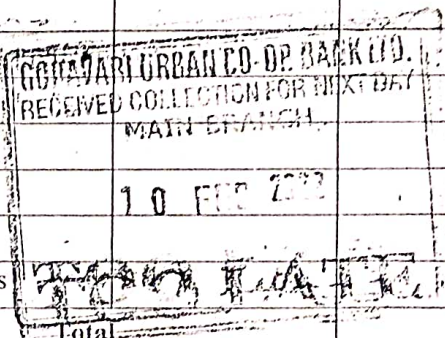 GODAVARI URBAN CO-OP. BANK LTD.
RECEIVED COLLECTION FOR NEXT DAY
MAIN BRANCH
10 FEB
s
TOO LATE
Total